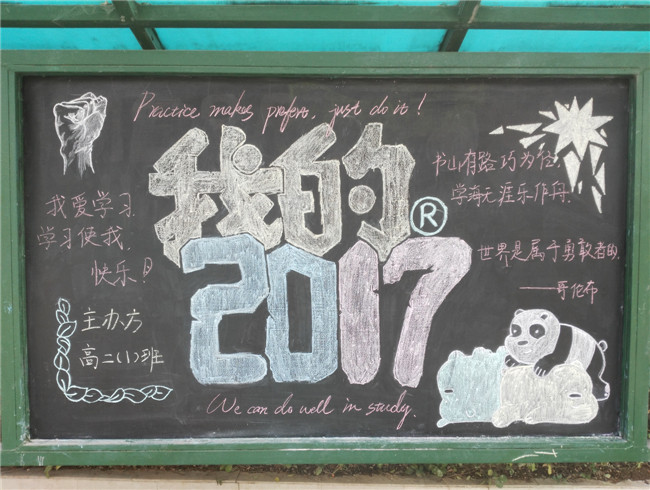 Practice makes prefert, just do it!
我的®
2017
我爱学习
学习使我
快乐!
主办方
高二(1)班
书山有路巧为径
学海无涯乐作舟.
世界是属于勇敢者的.
——哥伦布
We can do well in study.